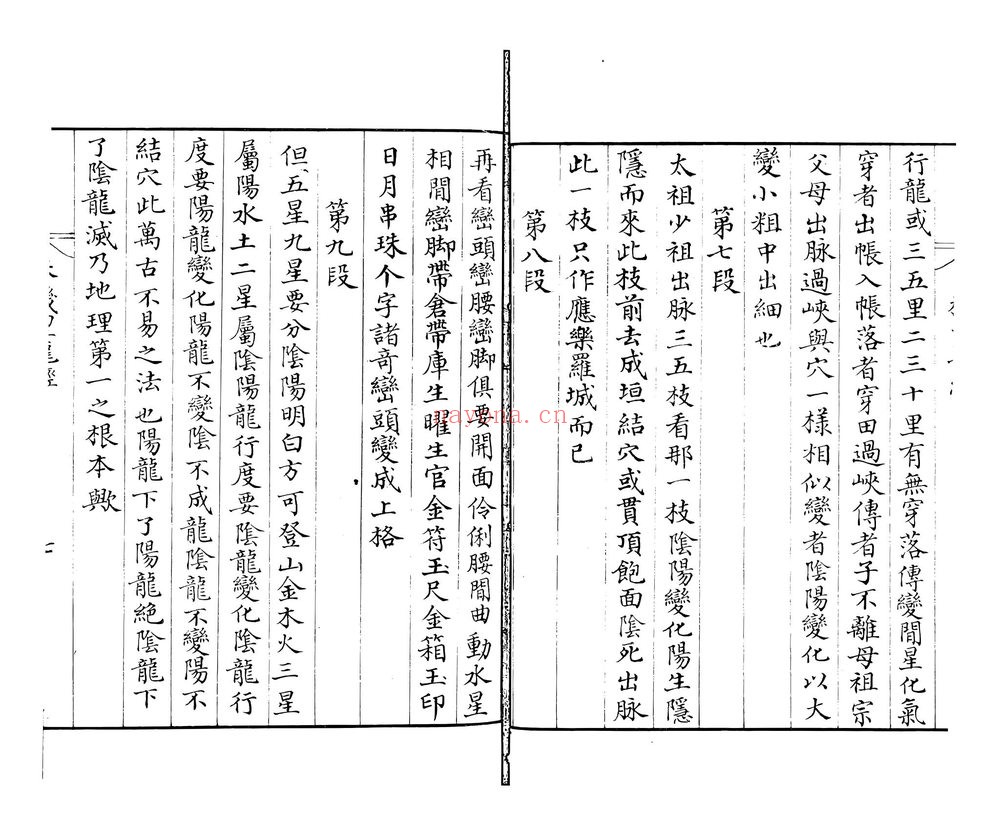 行龍或三五里二三十里有無穿落傳變間星化氣
穿者出帳入帳落者穿田過峽傳者子不離母祖宗
父母出脉過峽與穴一樣相似變者陰陽變化以大
變小粗中出細也
第七段
太祖少祖出脉三五枝看那一枝陰陽變化陽生隱
隱而來此枝前去成垣結穴或貫頂飽面陰死出脉
此一枝只作應樂羅城而已
第八段
再看巒頭巒腰巒脚俱要開面伶俐腰間曲動水星
相間巒脚帶倉帶庫生曜生官金符玉尺金箱玉印
日月串珠个字諸奇巒頭變成上格
第九段
但五星九星要分陰陽明白方可登山金木火三星
屬陽水土二星屬陰陽龍行度要陰龍變化陰龍行
度要陽龍變化陽龍不變陰不成龍陰龍不變陽不
結穴此萬古不易之法也陽龍下了陽龍絶陰龍下
了陰龍滅乃地理第一之根本歟
nayona.cn